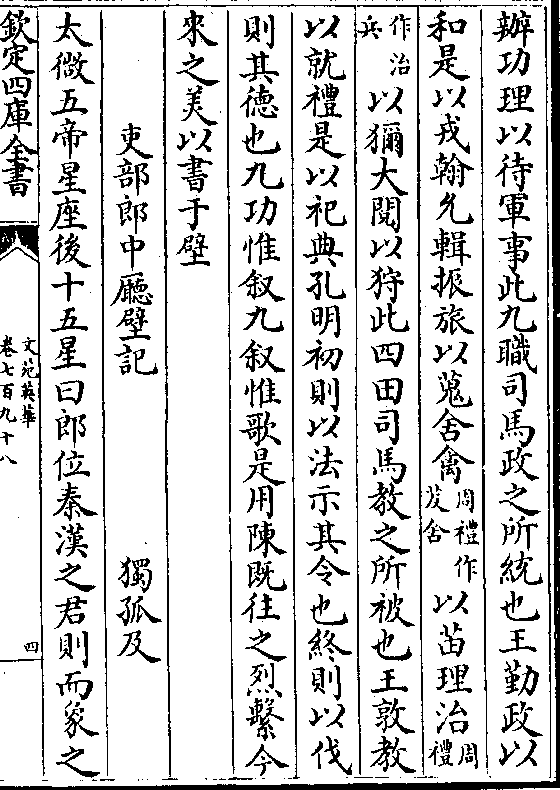 辦功理以待軍事此九職司馬政之所統也王勤政以
和是以戎翰允輯振旅以蒐舍禽周禮作茇舍以苗理治周禮
作治兵以獮大閱以狩此四田司馬教之所被也王敦教
以就禮是以祀典孔明初則以法示其令也終則以伐
則其德也九功惟叙九叙惟歌是用陳既往之烈繫今
來之美以書于壁
吏部郎中廳壁記 獨孤及
太微五帝星座後十五星曰郎位秦漢之君則而象之
欽定四庫全書
文苑英華
卷七百九十八
四